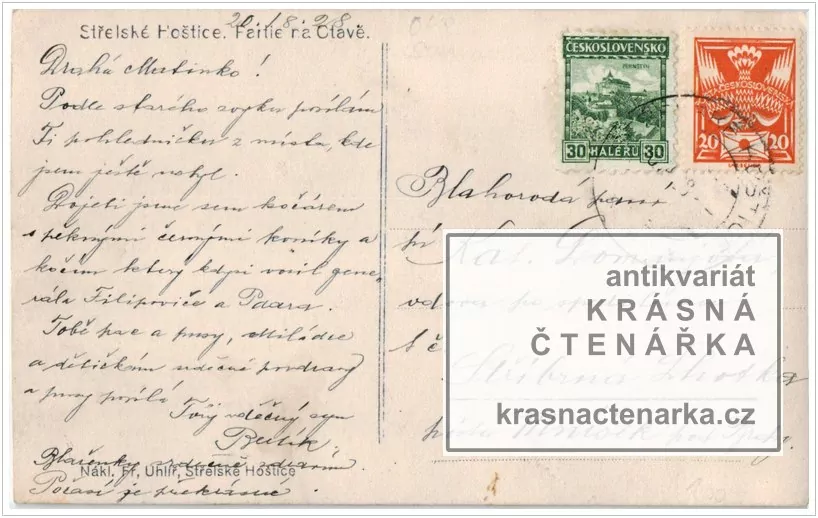 Střelské Hoštice. Partie na Otavě.
20. 8. 28
Drahá Matinko!
Podle starého zvyku posílám
Ti pohledničku z místa, kde
jsem ještě nebyl.
Dojeli jsme sem kočárem
s pěknými černými koníky a
kočím který kdysi vozil gene-
rála Filipoviče a Paara.
Tobě pac a pusy, Miládce
a dětičkám srdečné pozdravy
a pusy posílá
Tvůj vděčný syn
Blaženky srdečně zdravím
Nákl. Fr. Uhlíř, Střelské Hoštice
Počasí je překrásné
ČESKOSLOVENSKO
PERNŠTÝN
30 HALÉŘŮ 30
ČESKOSLOVENSKÁ
20 20
Blahorodá paní
pí
Kat.
vdova po
Stříbrná Lhotka
pošta Mníšek pod
antikvariát
KRÁSNÁ
ČTENÁŘKA
krasnactenarka.cz